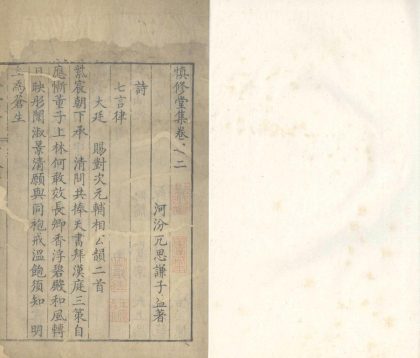 慎修堂集卷之二
河汾亢思謙子益著
詩
七言律
大廷 賜對次元輔相公韻二首
紫宸朝下承 清問共捧天書拜漢庭三策自
應慚董子上林何敢效長卿香浮碧殿和風轉
日映彤闈淑景清願與同袍戒溫飽須知 明
主為蒼生